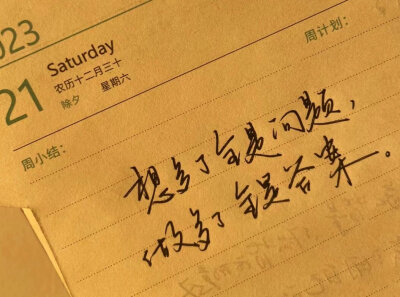 2023
21
Saturday
农历十二月三十
除夕 星期六
周计划:
周小结:
想多了全是问题，
做多了全是答案。